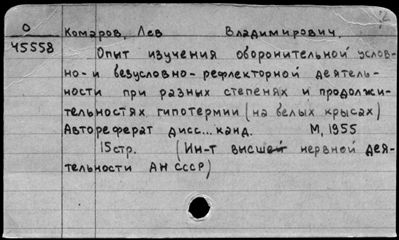 О
45558
Комаров, Лев Владимирович.
Опыт изучения оборонительной услов-
но- и безусловно-рефлекторной деятель-
ности при разных степенях и продолжи-
тельностях гипотермии (на белых крысах)
Автореферат дисс... канд. М, 1955
15 стр. (Ин-т высшей нервной дея-
тельности АН СССР)